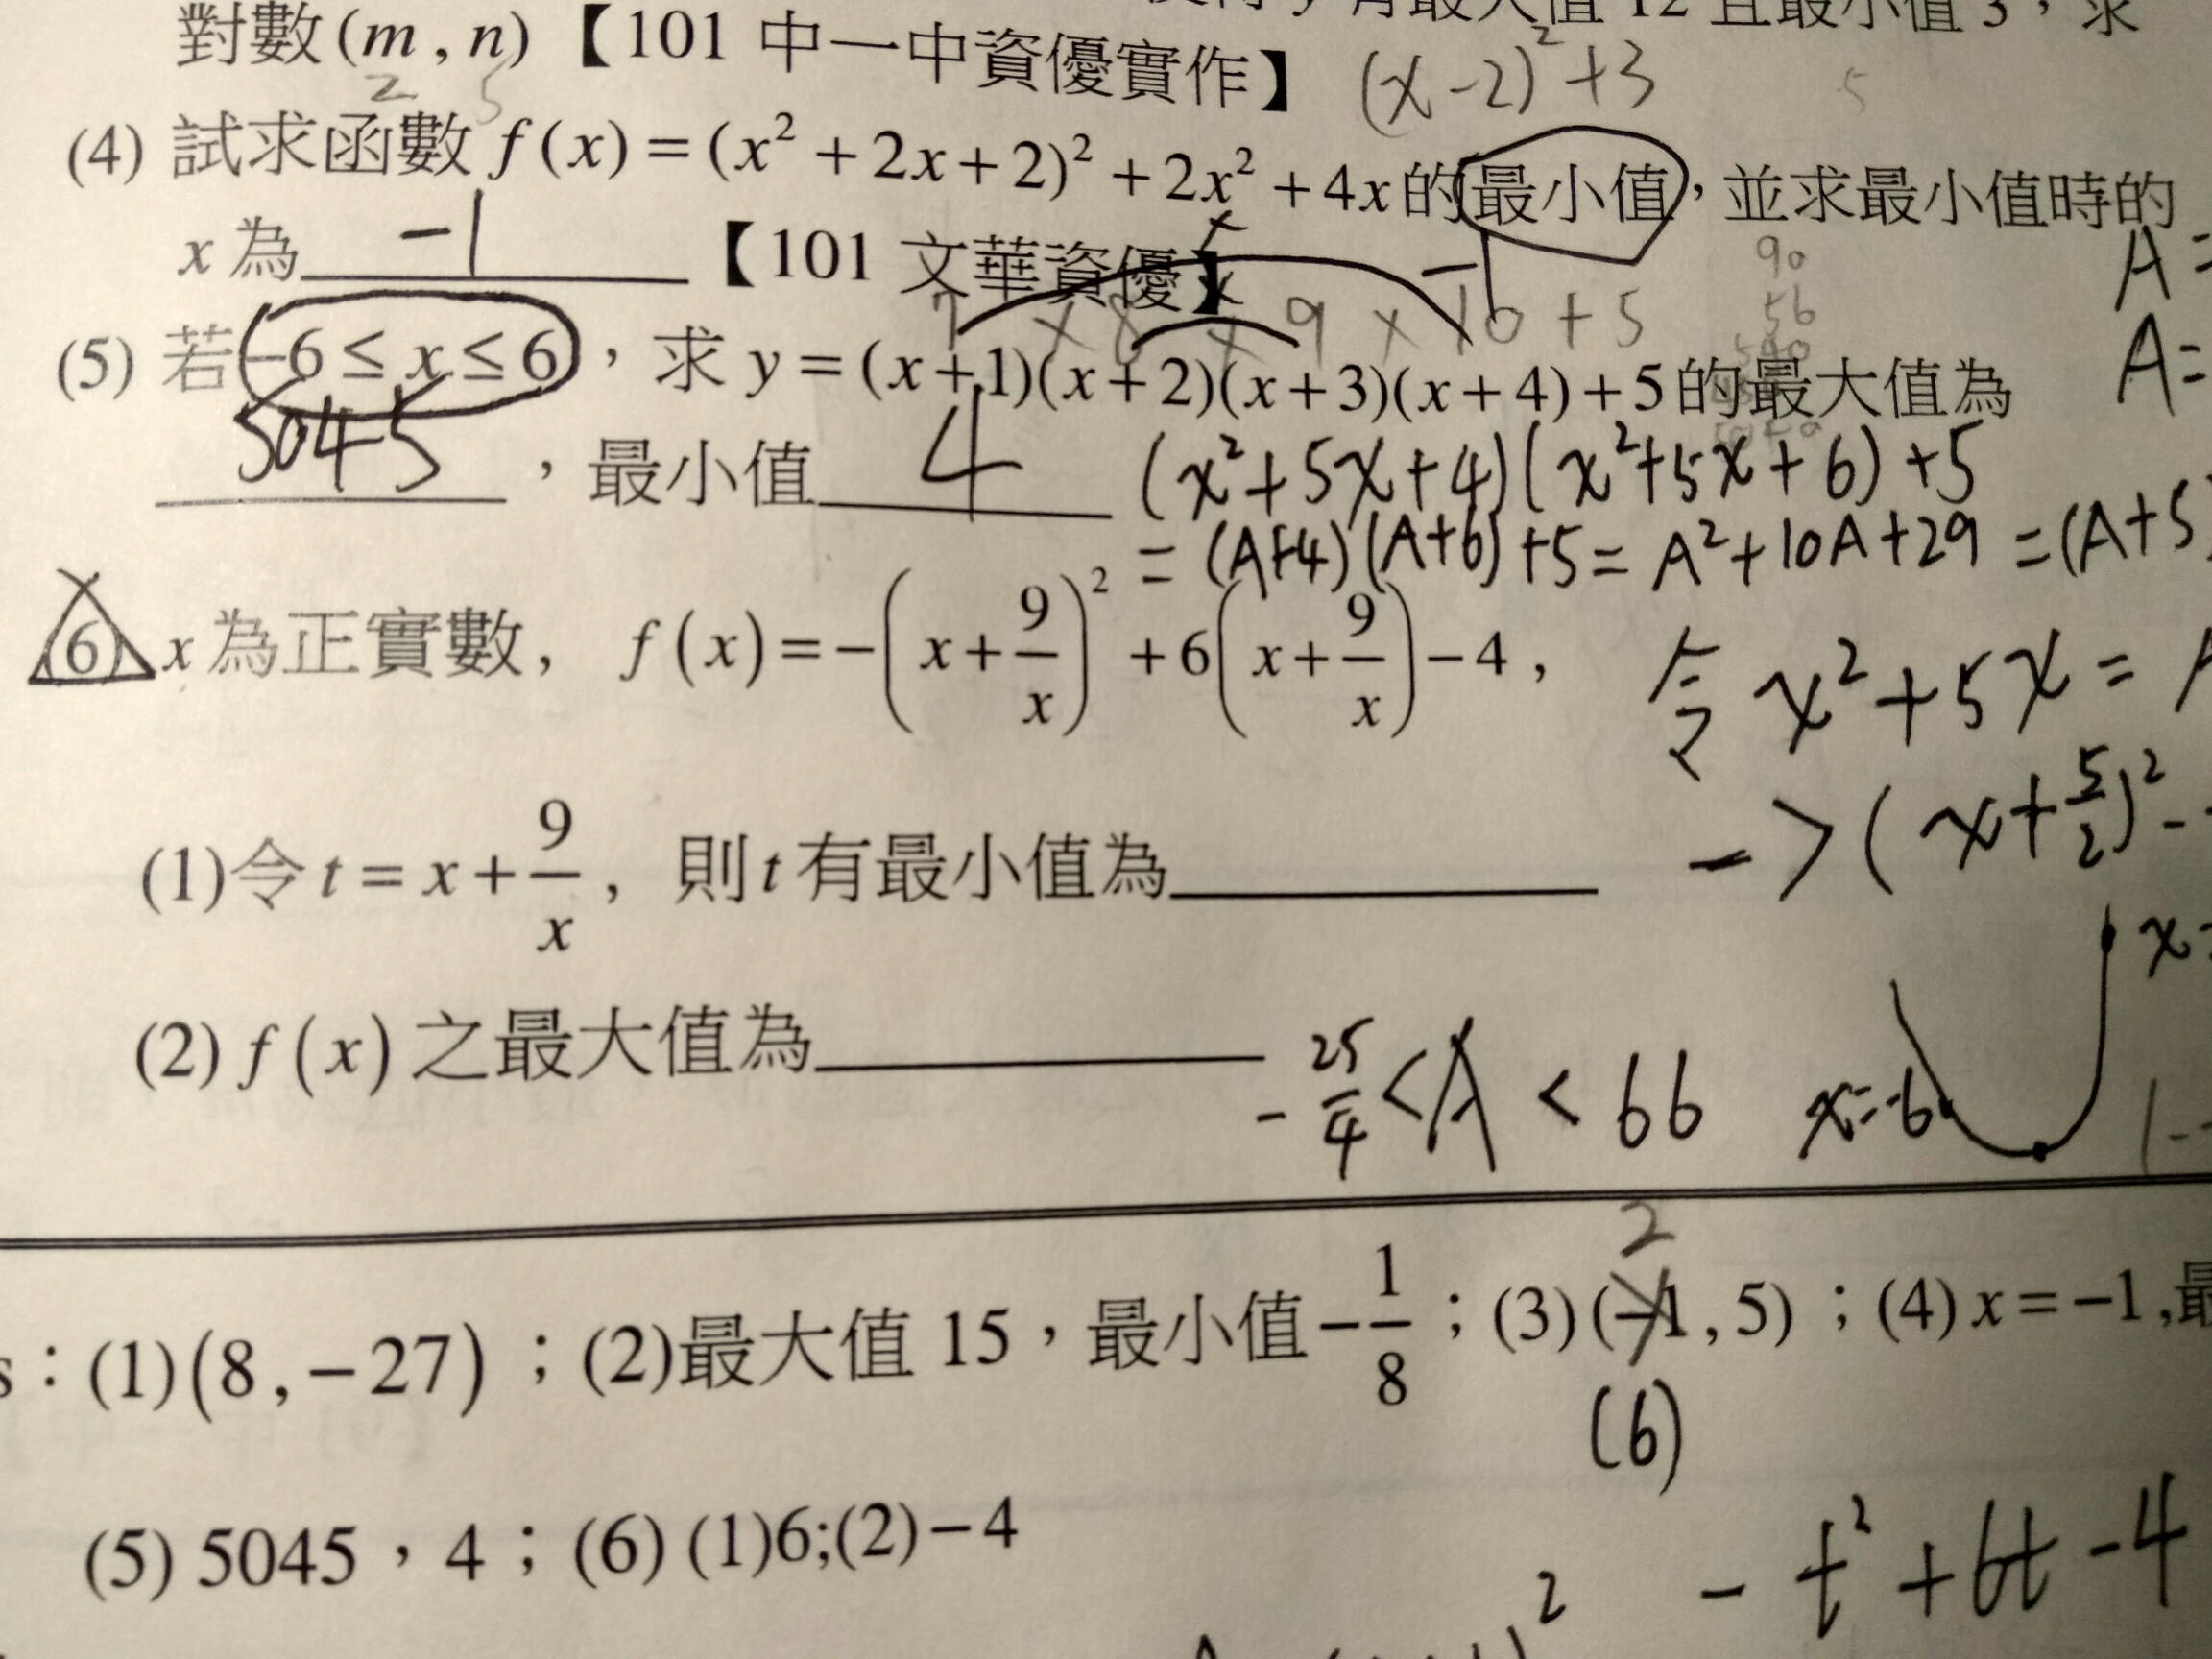 有最大值 12 且最小值 3，求
對數(m , n)【101 中一中資優實作】 (x-2)²+3
2 5 5
(4) 試求函數 f(x) = (x² + 2x + 2)² + 2x² + 4x 的最小值，並求最小值時的
x 為 -1 【101 文華資優】 -1
A=
7 × 8 × 9 × 10 + 5
90
56
(5) 若 -6 ≤ x ≤ 6，求 y = (x+1)(x+2)(x+3)(x+4)+5 的最大值為
A=
5045，最小值 4 (x²+5x+4)(x²+5x+6)+5
=(A+4)(A+6)+5=A²+10A+29=(A+5)
(6) x 為正實數， f(x) = -(x+9/x)² + 6(x+9/x) - 4 ,
令 x²+5x=A
(1)令 t = x + 9/x , 則 t 有最小值為
->(x+5/2)²-
x=
(2) f(x) 之最大值為
-25/4<A<66 x=-6
2
s：(1)(8,-27)；(2)最大值 15，最小值-1/8；(3)(-1,5)；(4) x=-1,最
(6)
(5) 5045，4；(6) (1)6;(2)-4
-t²+6t-4